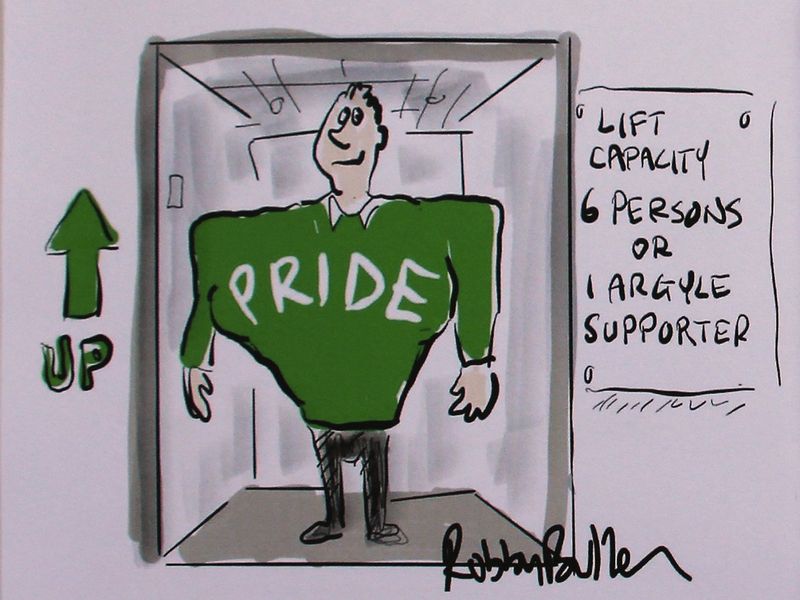 PRIDE
UP
LIFT
CAPACITY
6 PERSONS
OR
1 ARGYLE
SUPPORTER
Robby Bullen